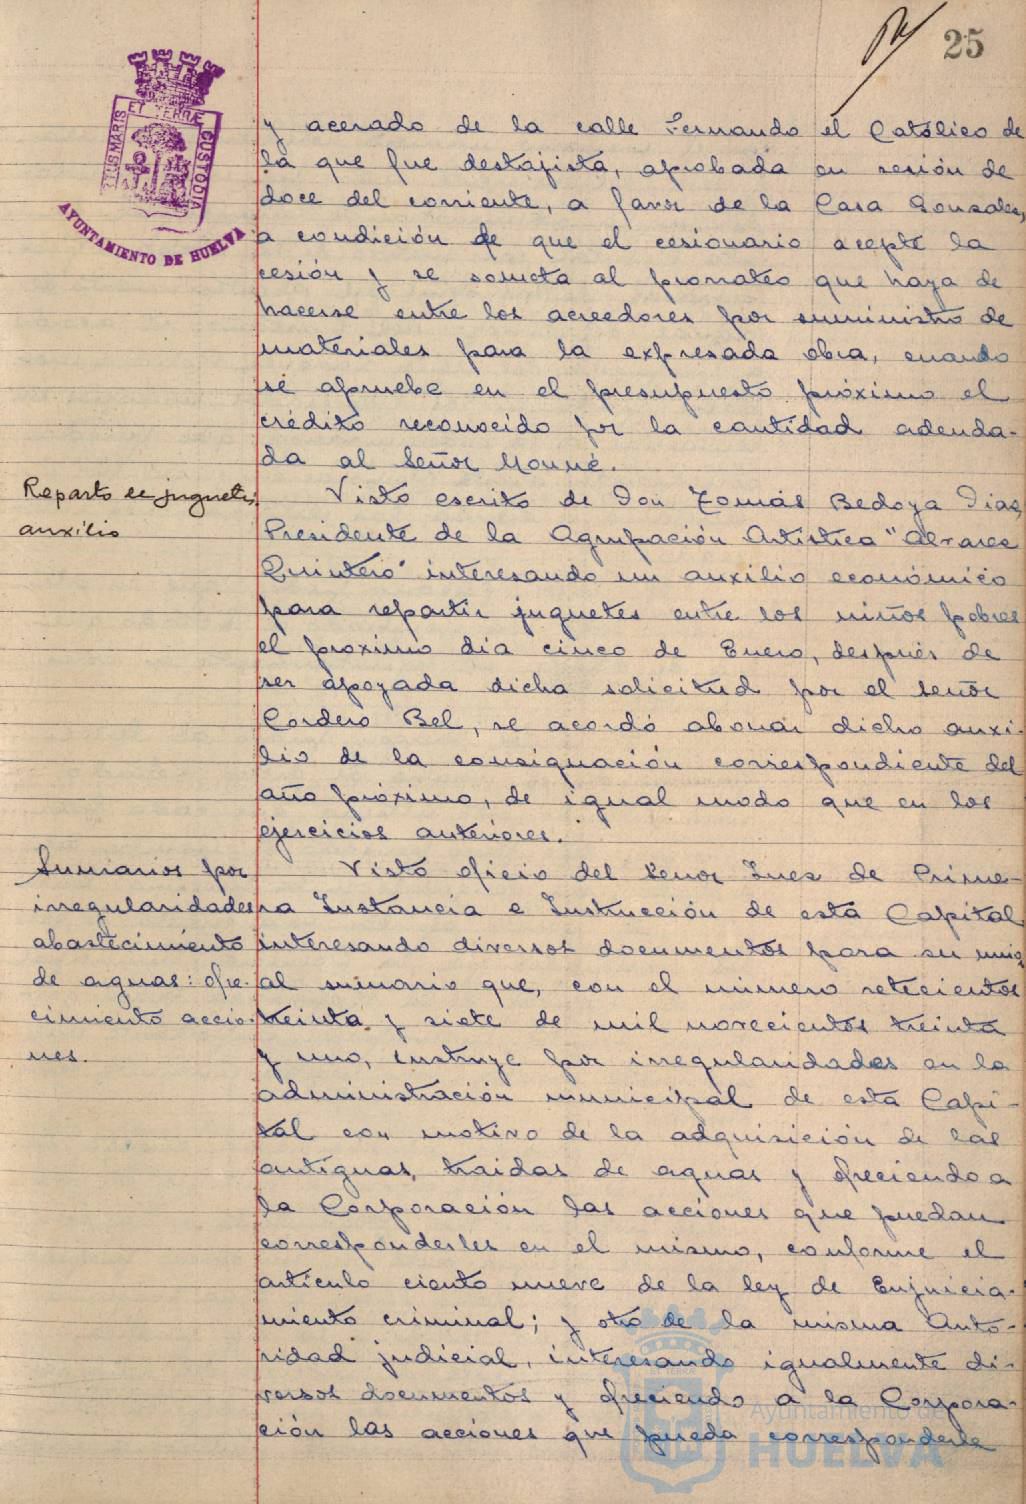 25
PORTUS MARIS ET TERRAE CUSTODIA
AYUNTAMIENTO DE HUELVA
y acerado de la calle Fernando el Católico de
la que fue destajista, aprobada en sesión de
doce del corriente, a favor de la Casa Gonzalez,
a condición de que el cesionario acepte la
cesión y se someta al prorrateo que haya de
hacerse entre los acreedores por suministro de
materiales para la expresada obra, cuando
se apruebe en el presupuesto próximo el
crédito reconocido por la cantidad adeuda-
da al Señor Monné.
Reparto de juguetes,
auxilio
Visto escrito de Don Tomás Bedoya Dias,
Presidente de la Agrupación Artística "Alvarez
Quintero" interesando un auxilio económico
para repartir juguetes entre los niños pobres
el proximo dia cinco de Enero, después de
ser apoyada dicha solicitud por el Señor
Cordero Bel, se acordó abonar dicho auxi-
lio de la consignación correspondiente del
año próximo, de igual modo que en los
ejercicios anteriores.
Sumarios por
irregularidades
abastecimiento
de aguas: ofre-
cimiento accio-
nes.
Visto oficio del Señor Juez de Prime-
ra Instancia e Instrucción de esta Capital
interesando diversos documentos para su unión
al sumario que, con el número setecientos
treinta y siete de mil novecientos treinta
y uno, instruye por irregularidades en la
administración municipal de esta Capi-
tal con motivo de la adquisición de las
antiguas traidas de aguas y ofreciendo a
la Corporación las acciones que puedan
corresponderles en el mismo, conforme el
artículo ciento nueve de la ley de Enjuicia-
miento criminal; y otro de la misma Auto-
ridad judicial, interesando igualmente di-
versos documentos y ofreciendo a la Corpora-
ción las acciones que pueda corresponderle
Ayuntamiento de
HUELVA